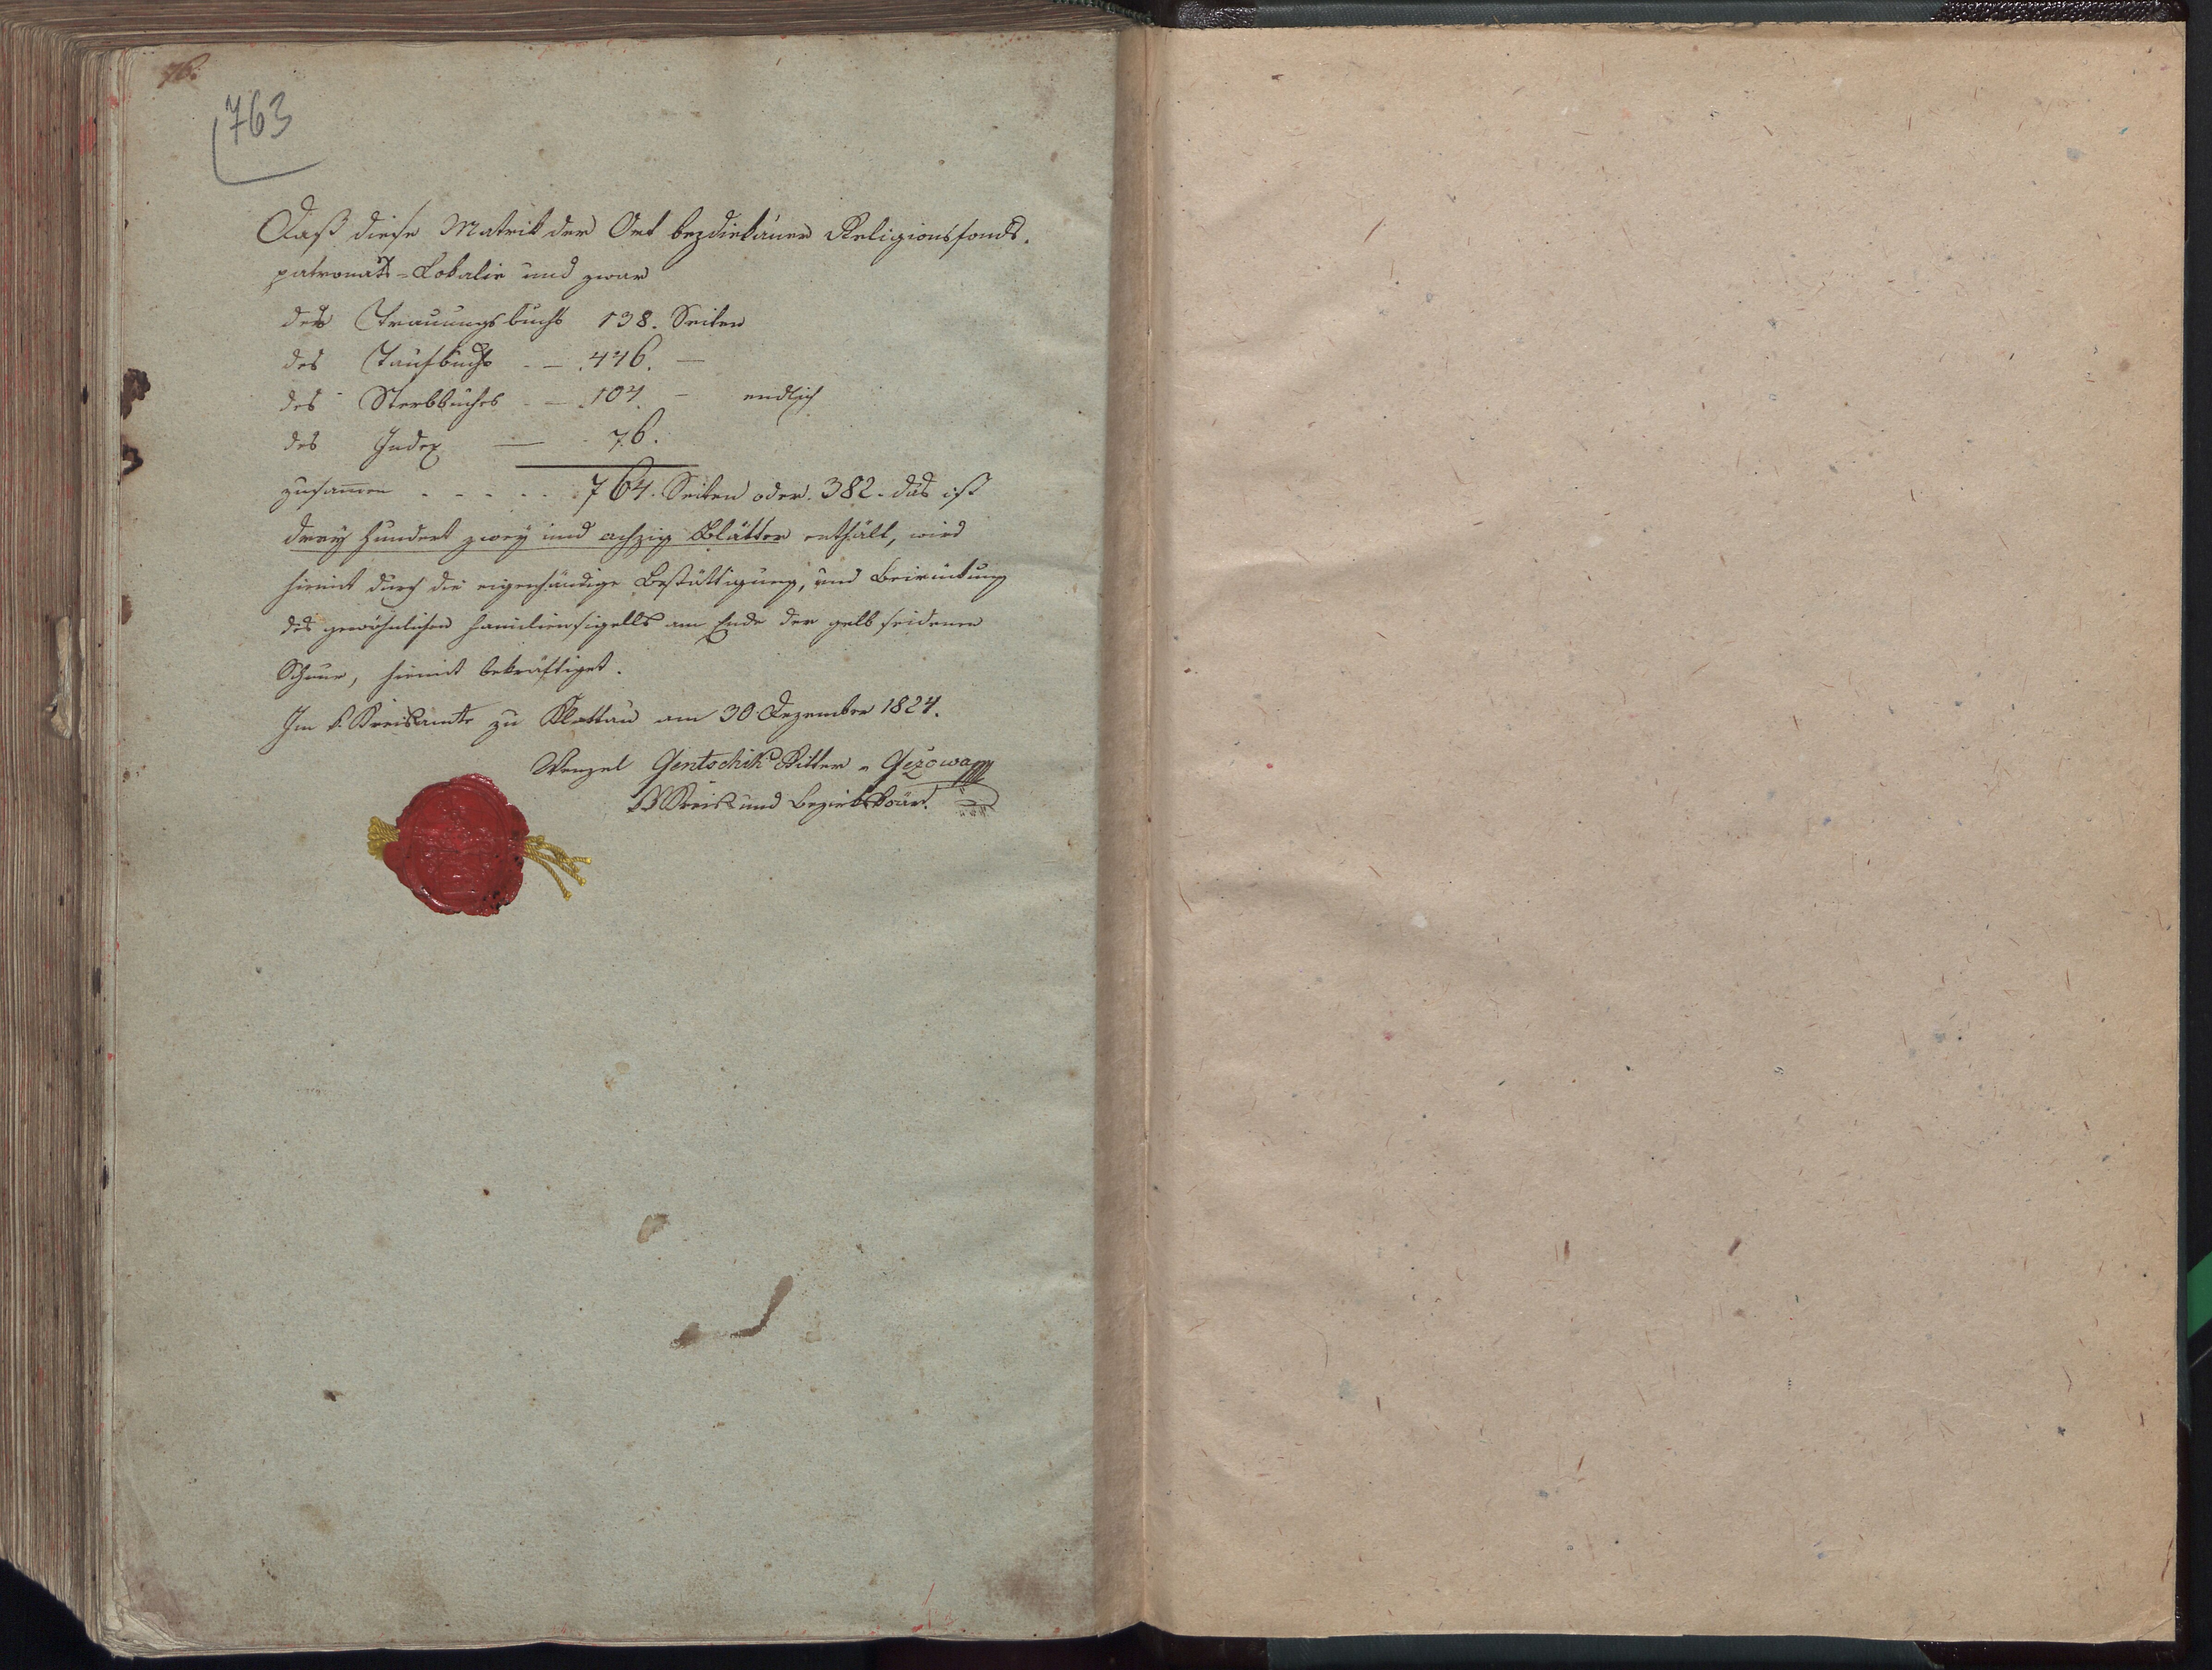 76.
763
Daß diese Matrik der Ort bezdiekauer Religionsfonds-
patronats-Lokalie und zwar
des Trauungsbuchs 138. Seiten
des Taufbuchs - - 446. -
des Sterbbuches - - 104. - endlich
des Index - - 76.
zusammen . - - - . . 764. Seiten oder 382. das ist
drey hundert zwey und achzig Blätter enthält, wird
hiemit durch die eigenhändige Bestättigung, und Beidrückung
des gewöhnlichen Familiensigells am Ende der gelb seidenen
Schnur, hiemit bekräftiget.
Im k. Kreisamte zu Klattau am 30. Dezember 1824.
Wenzel Gentschik Ritter v Gezowa
Kreis und Bezirkskoär.